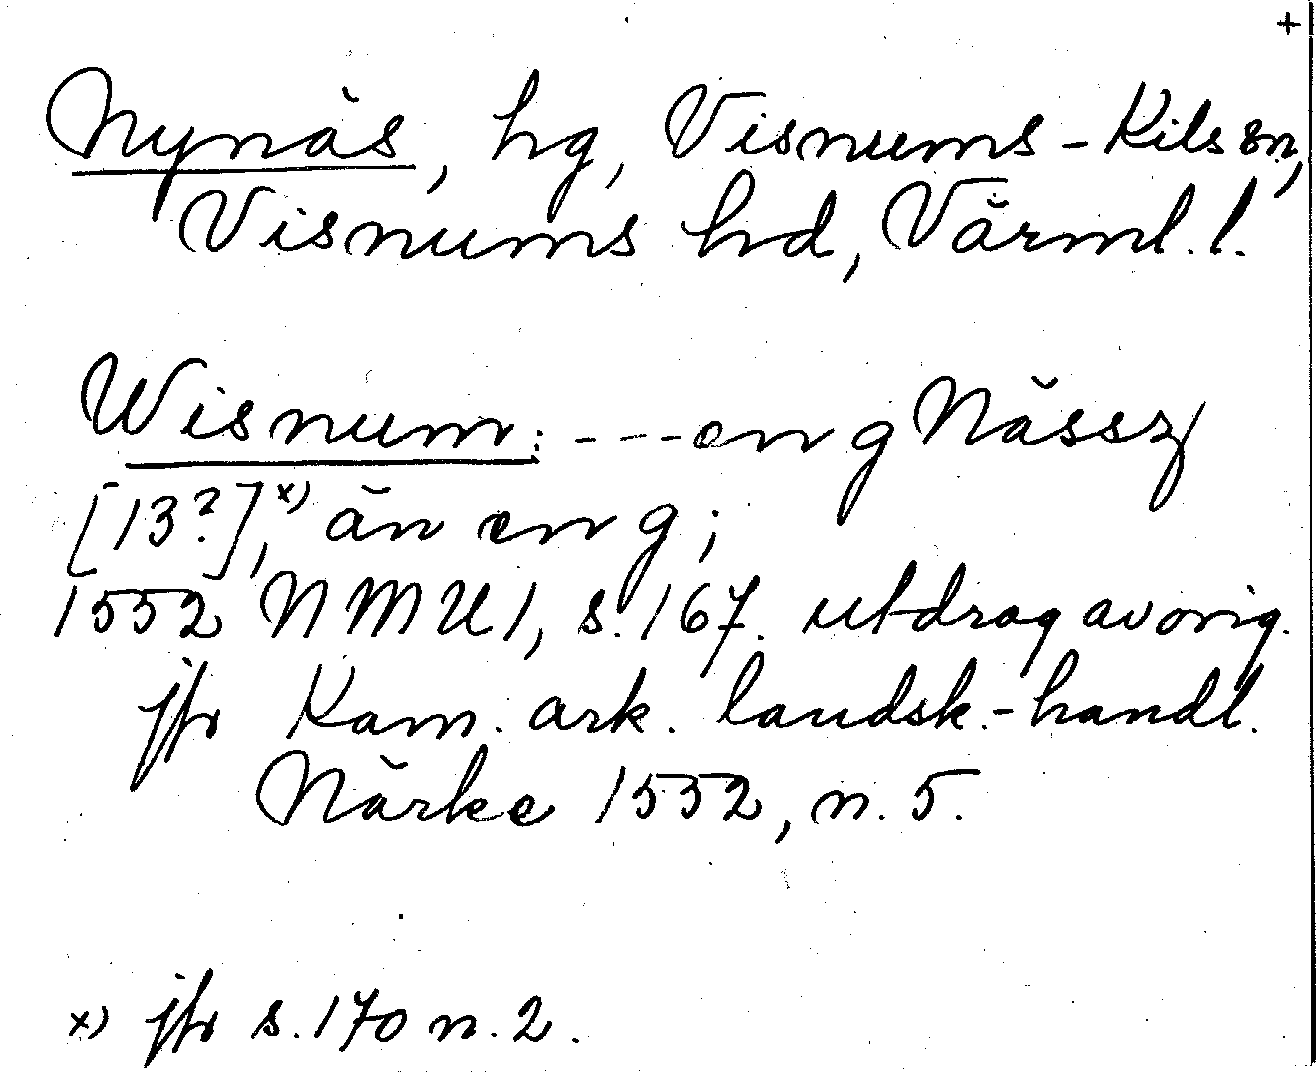 +
Nynäs, hg, Visnums-Kils sn,
Visnums hd, Värml. l.
Wisnum: - - - en g Nässz
[13?],x) än en g;
1552 NMU 1, s. 167. utdrag av orig.
jfr Kam. ark. landsk.-handl.
Närke 1552, n. 5.
x) jfr s. 170 n. 2.